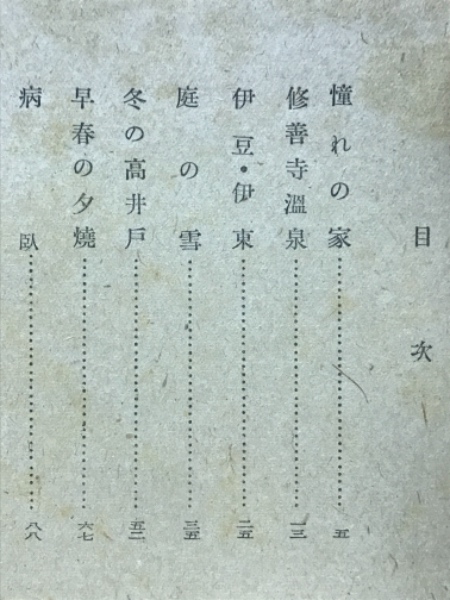 目次
憧れの家…………五
修善寺溫泉…………一三
伊豆・伊東…………二五
庭の雪…………三五
冬の高井戸…………五二
早春の夕燒…………六七
病臥…………八八